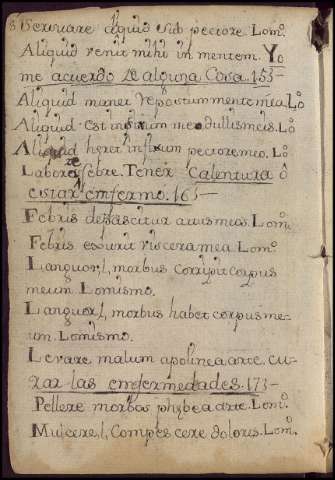 Servare aliquid sub pectore. Lomo.
Aliquid venit mihi in mentem. Yo
me acuerdo de alguna cosa. 155
Aliquid manet repostum mente mea. Lo
Aliquid est infixum medullis meis. Lo
Aliquid heret infixum pectore meo. Lo.
Laborare febre. Tener Calentura ô
estar emfermo. 165
Febris depascitur artus meos. Lomo.
Febris exurit viscera mea. Lomo.
Languor, l, morbus corripit corpus
meum. Lomismo.
Languor, l, morbus habet corpus me-
um. Lomismo.
Levare malum apolinea arte. cu-
rar las emfermedades. 173
Pellere morbos phybea arte. Lomo.
Mulcere, l, Compescere dolores. Lomo.